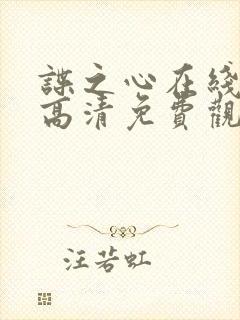 諜之心在綫
高清免費觀
汪若虹